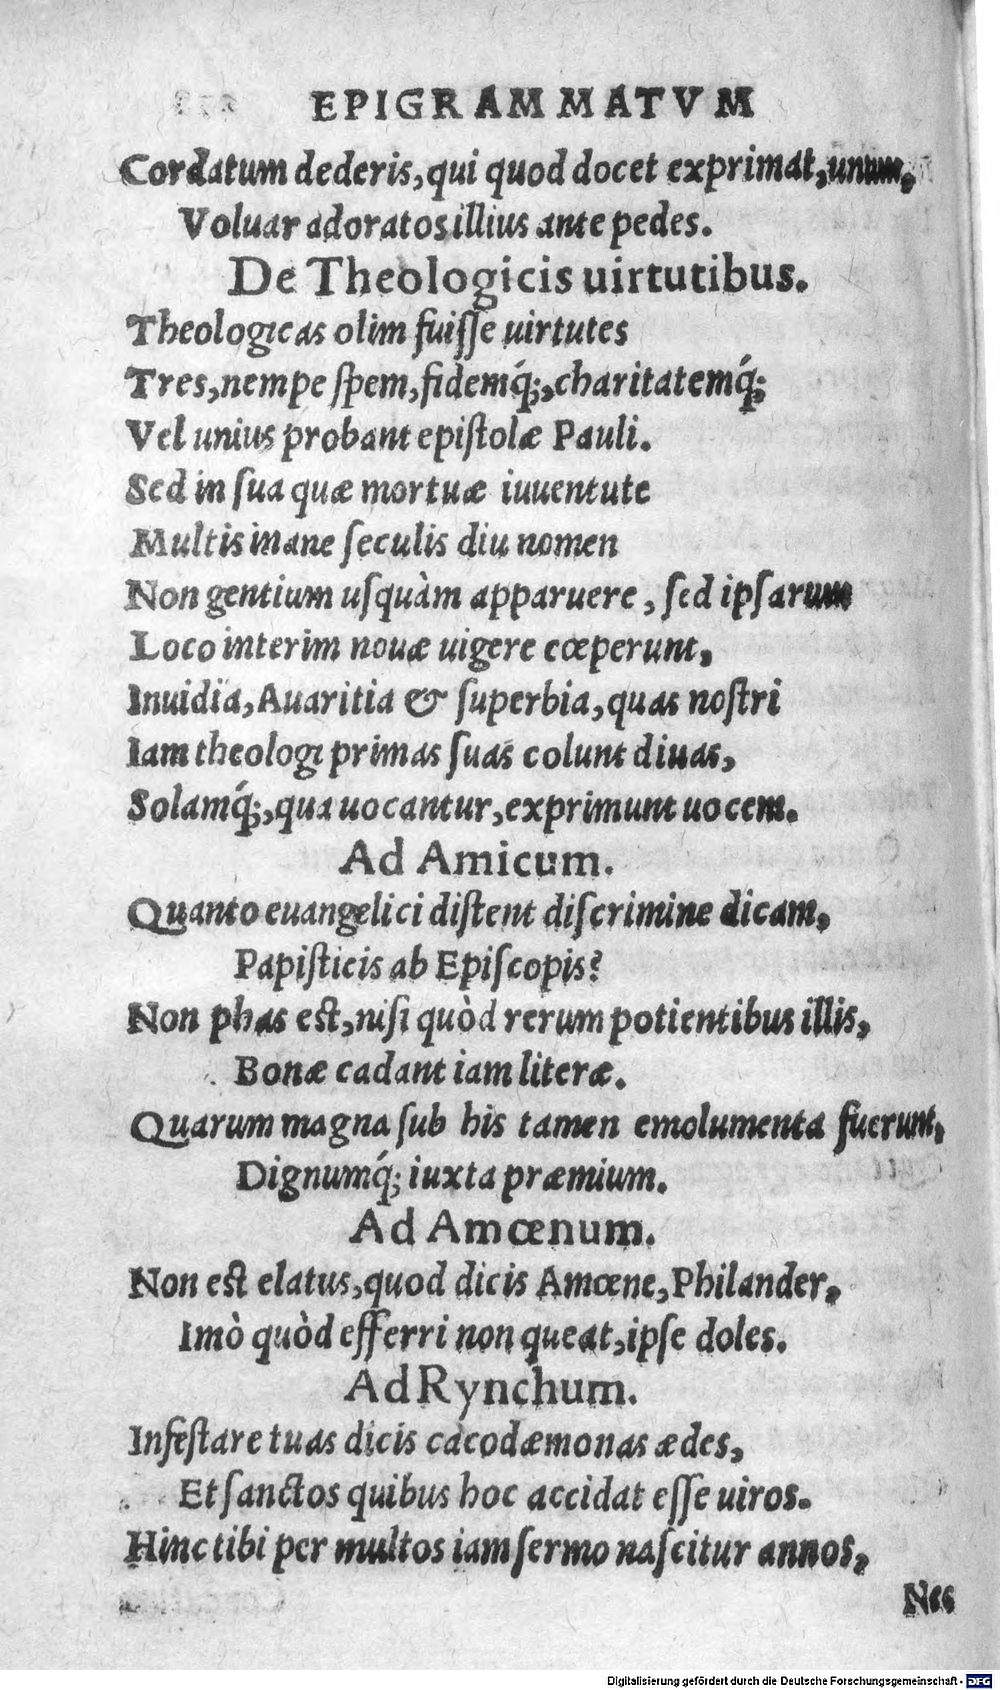 EPIGRAMMATVM
Cordatum dederis, qui quod docet exprimat, unum,
Voluar adoratos illius ante pedes.
De Theologicis uirtutibus.
Theologicas olim fuiſſe uirtutes
Tres, nempe ſpem, fidemq́;, charitatemq́;
Vel unius probant epiſtolæ Pauli.
Sed in ſua quæ mortuæ iuuentute
Multis inane ſeculis diu nomen
Non gentium uſquàm apparuere, ſed ipſarum
Loco interim nouæ uigere cœperunt,
Inuidia, Auaritia & ſuperbia, quas noſtri
Iam theologi primas ſuas colunt diuas,
Solamq́;, qua uocantur, exprimunt uocem.
Ad Amicum.
Quanto euangelici diſtent diſcrimine dicam,
Papiſticis ab Epiſcopis?
Non phas eſt, niſi quòd rerum potientibus illis,
Bonæ cadant iam literæ.
Quarum magna ſub his tamen emolumenta fuerunt,
Dignumq́; iuxta præmium.
Ad Amœnum.
Non eſt elatus, quod dicis Amœne, Philander,
Imò quòd efferri non queat, ipſe doles.
Ad Rynchum.
Infeſtare tuas dicis cacodæmonas ædes,
Et ſanctos quibus hoc accidat eſſe uiros.
Hinc tibi per multos iam ſermo naſcitur annos,
Nec
Digitalisierung gefördert durch die Deutsche Forschungsgemeinschaft - DFG